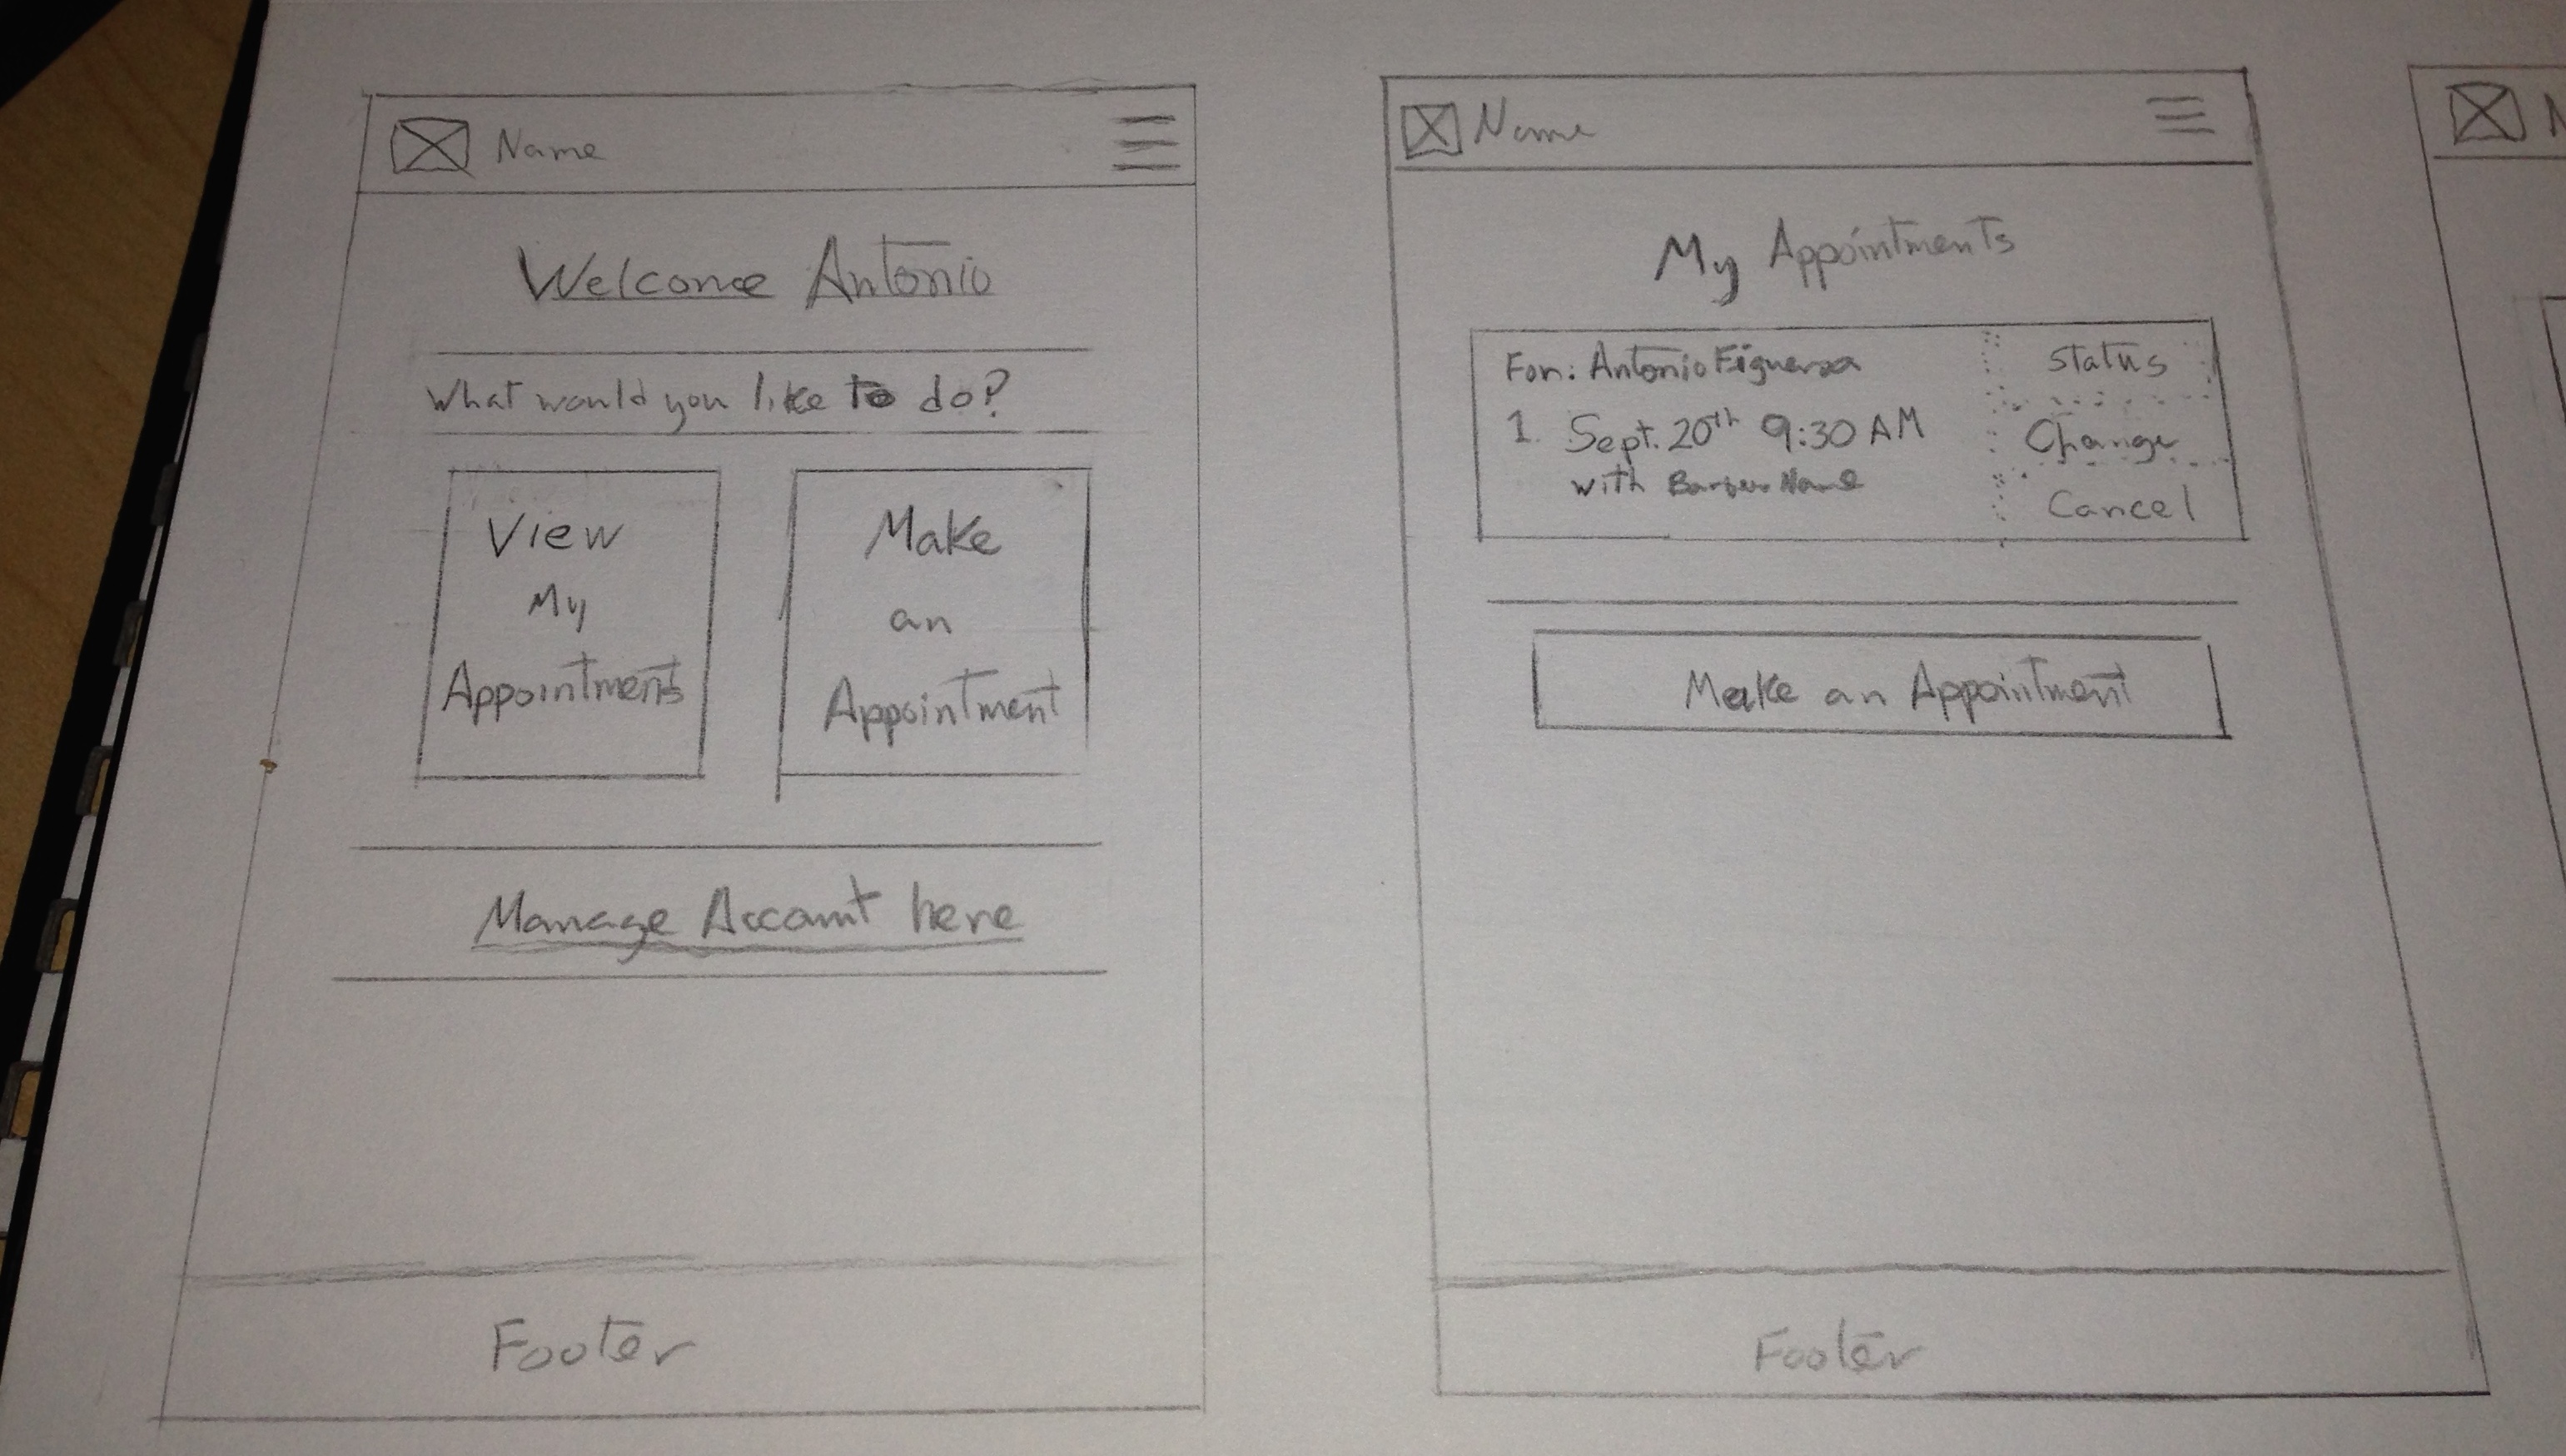 Name
Welcome Antonio
What would you like to do?
View
My
Appointments
Make
an
Appointment
Manage Account here
Footer
Name
My Appointments
For: Antonio Figueroa
Status
1. Sept. 20th 9:30 AM
Change
with Barber Name
Cancel
Make an Appointment
Footer
N